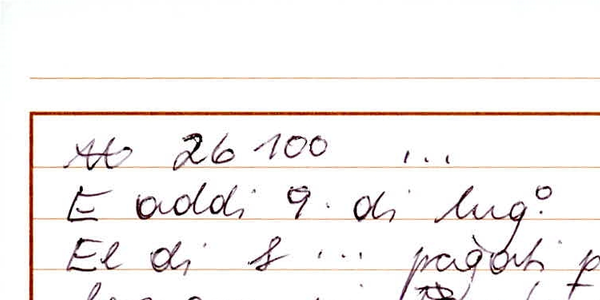 26 100 ...
E addi 9. di lug°.
El di 8 ... pagati p